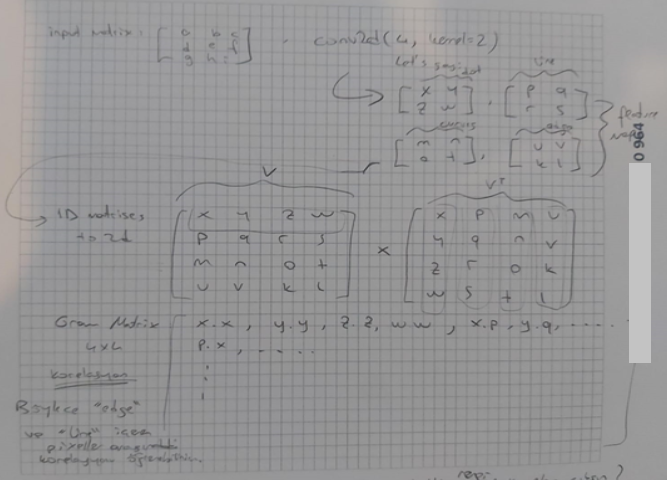 input matrix: [ a b c
d e f
g h i ] . conv2d(4, kernel=2)
Let's say: dot
line
[ x y
z w ] , [ p q
r s ]
feature
maps
curves
edge
[ m n
o t ] , [ u v
k l ]
0 964
V
V^T
1D matrises
to 2d
[ x y z w
p q r s
m n o t
u v k l ]
x
[ x p m u
y q n v
z r o k
w s t l ]
Gram Matrix
4x4
x.x , y.y , z.z, w.w , x.p , y.q , .....
p.x , .....
korelasyon
Böylece "edge"
ve "line" içeren
pixeller arasındaki
korelasyon